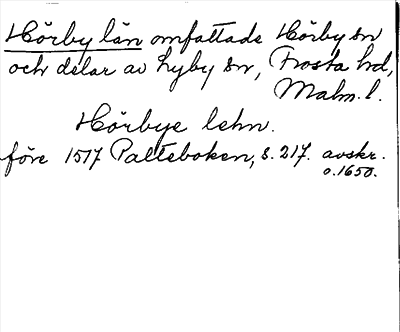 Hörby län omfattade Hörby sn
och delar av Lyby sn, Frosta hd,
Malm. l.
Hörbye lehn.
före 1517 Palteboken, s. 217. avskr.
o. 1650.